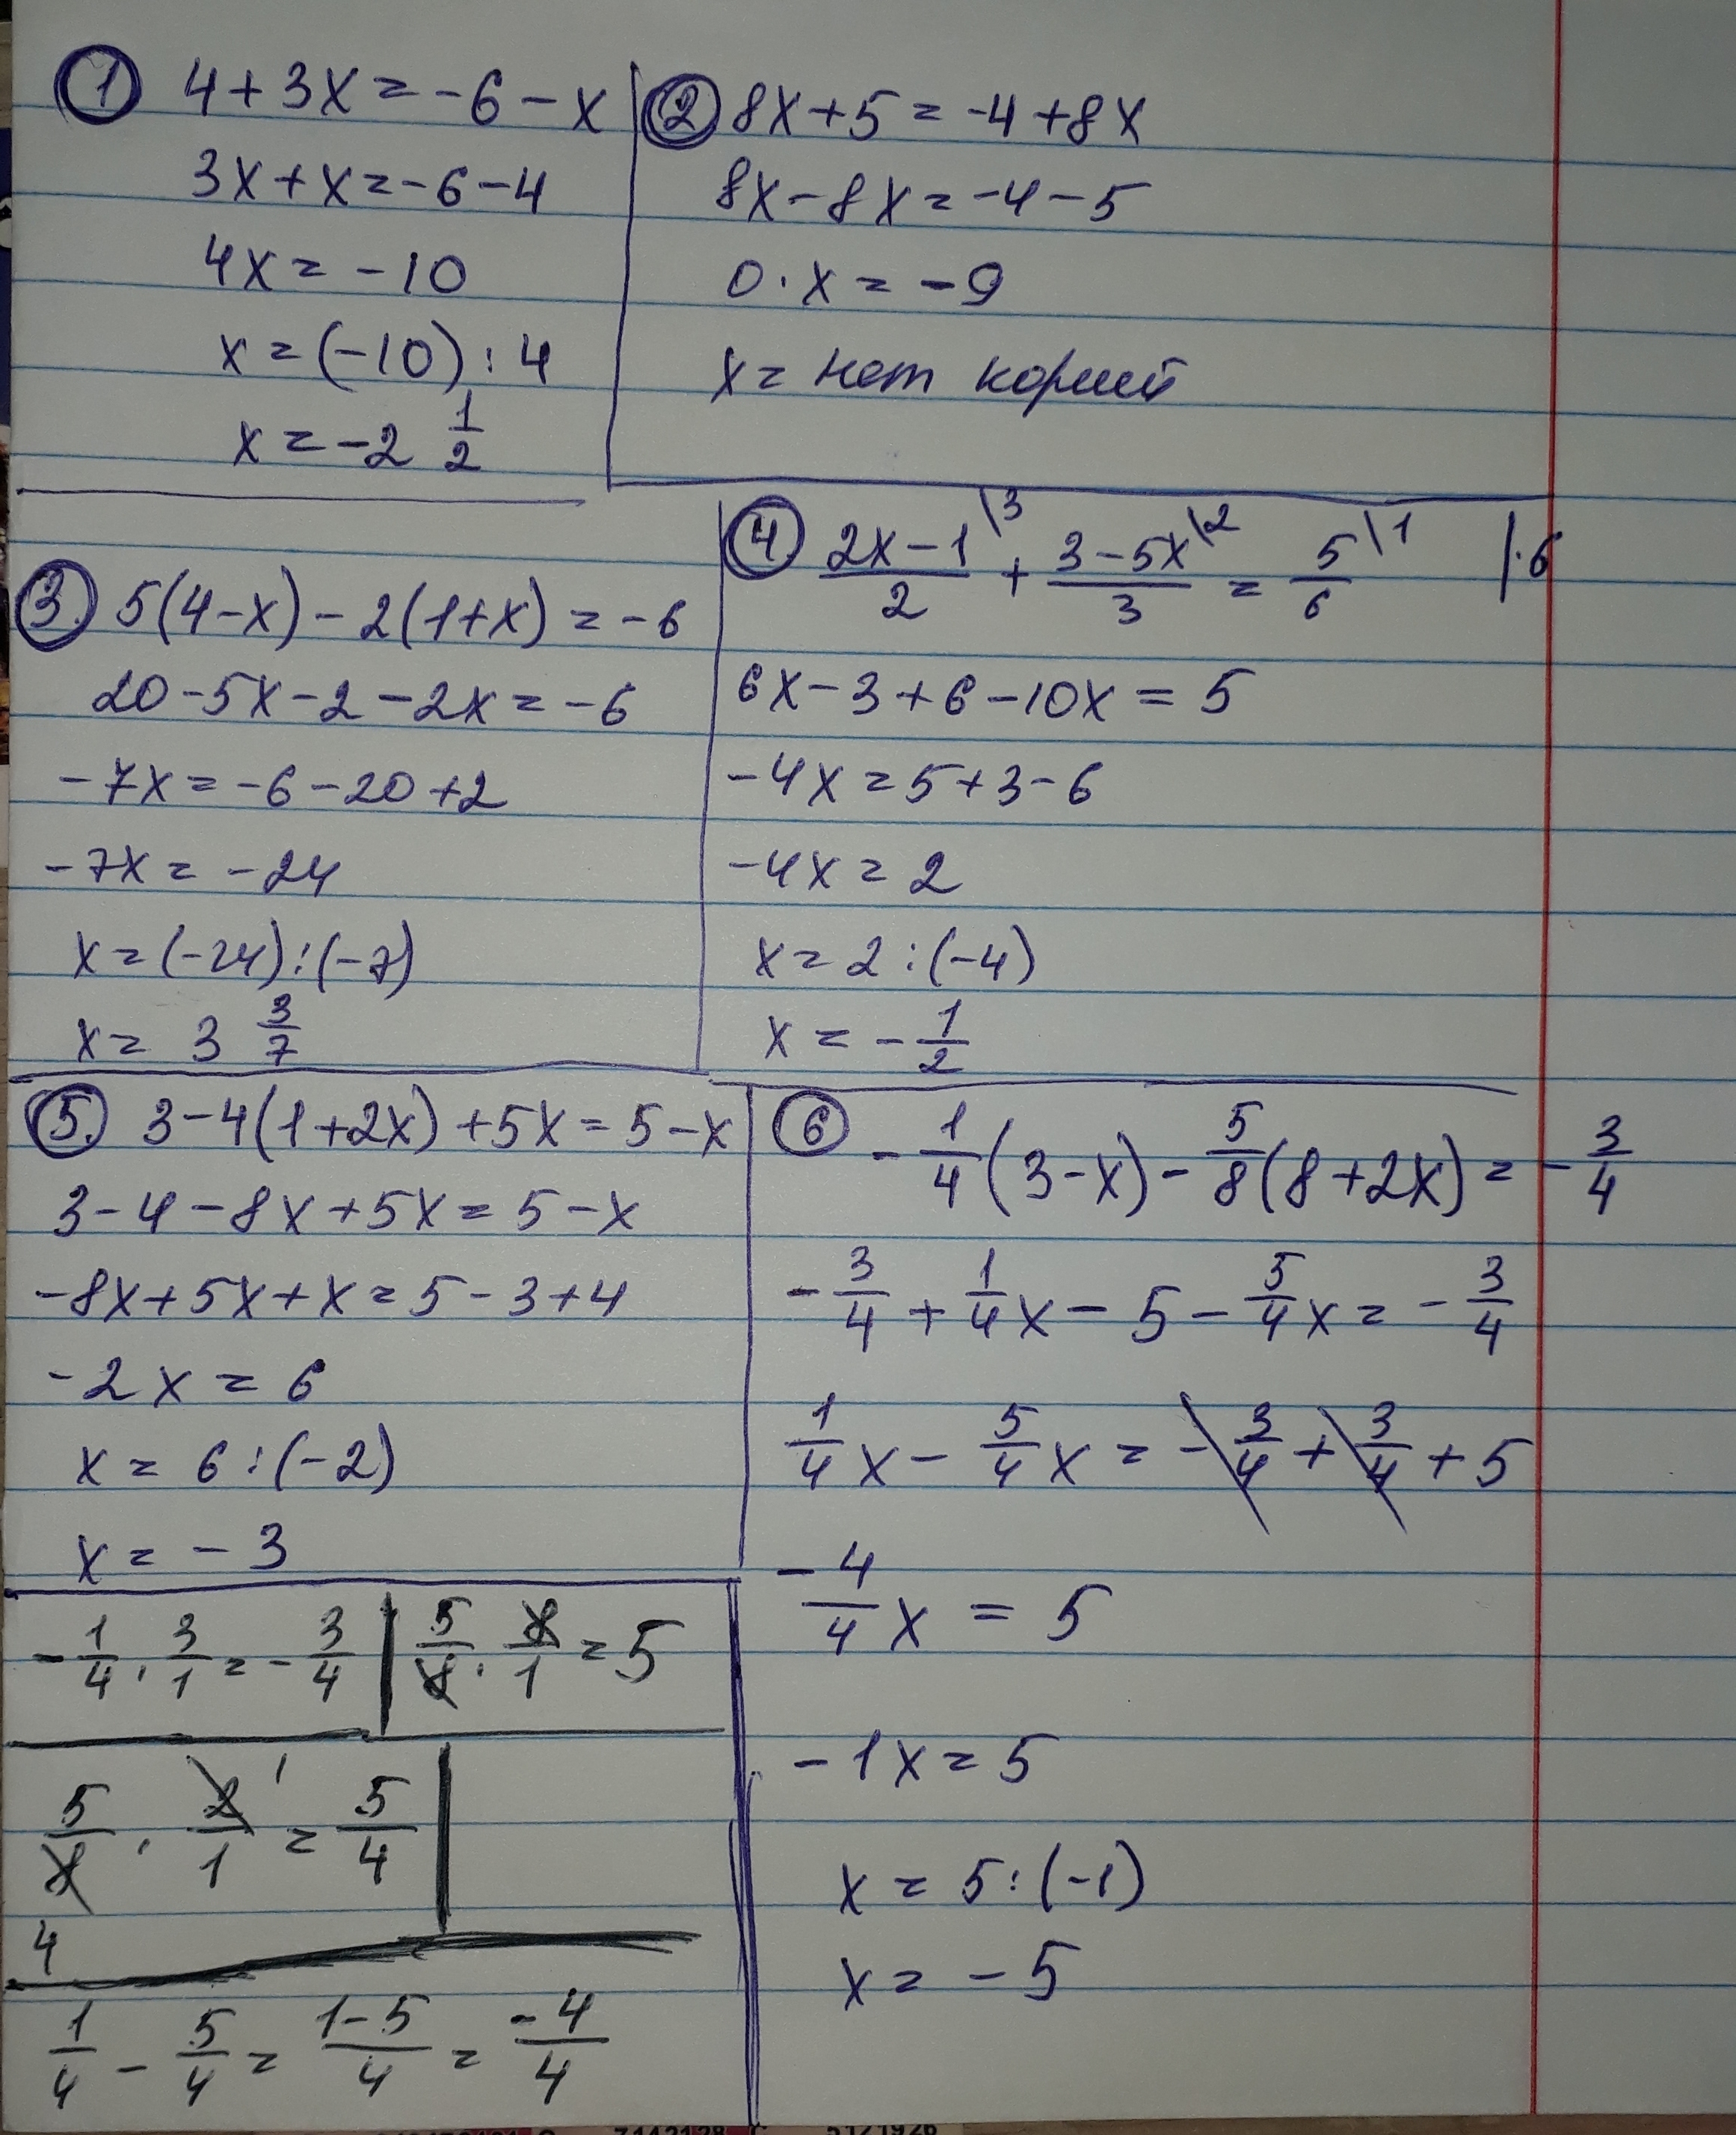 ① 4+3x=-6-x
3x+x=-6-4
4x=-10
x=(-10):4
x=-2 1/2
② 8x+5=-4+8x
8x-8x=-4-5
0·x=-9
x= нет корней
③. 5(4-x)-2(1+x)=-6
20-5x-2-2x=-6
-7x=-6-20+2
-7x=-24
x=(-24):(-7)
x= 3 3/7
④. (2x-1)/2 \3 + (3-5x)/3 \2 = 5/6 \1 |·6
6x-3+6-10x=5
-4x=5+3-6
-4x=2
x=2:(-4)
x=-1/2
⑤. 3-4(1+2x)+5x=5-x
3-4-8x+5x=5-x
-8x+5x+x=5-3+4
-2x=6
x=6:(-2)
x=-3
⑥ -1/4(3-x)-5/8(8+2x)=-3/4
-3/4+1/4x-5-5/4x=-3/4
1/4x-5/4x=-3/4+3/4+5
-4/4x=5
-1x=5
x=5:(-1)
x=-5
-1/4·3/1=-3/4
5/8·8/1=5
5/8·2/1=5/4
1
4
1/4-5/4=(1-5)/4=-4/4